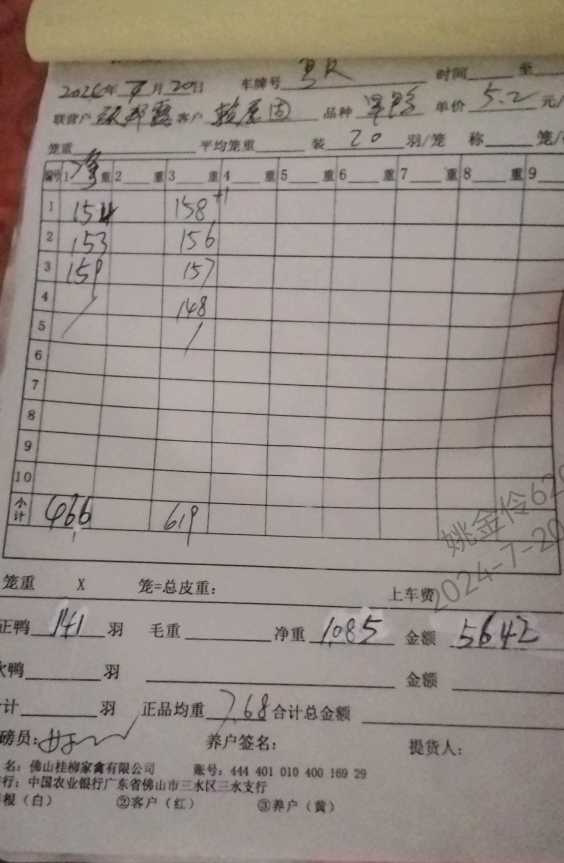 2024年7月20日 车牌号 时间 至
联营户 客户 品种 单价 5.2 元/
笼重 平均笼重 装 20 羽/笼 称 笼/
编号 1 重 2 重 3 重 4 重 5 重 6 重 7 重 8 重 9
1 154 158+1
2 153 156
3 159 157
4 148
5
6
7
8
9
10
小计 466 619
笼重 X 笼=总皮重: 上车费
正鸭 141 羽 毛重 净重 1085 金额 5642
鸭 羽 金额
计 羽 正品均重 7.68 合计总金额
磅员: 养户签名: 提货人:
名: 佛山桂柳家禽有限公司 账号: 444 401 010 400 169 29
行: 中国农业银行广东省佛山市三水区三水支行
根（白） ②客户（红） ③养户（黄）
姚金伶62
2024-7-20